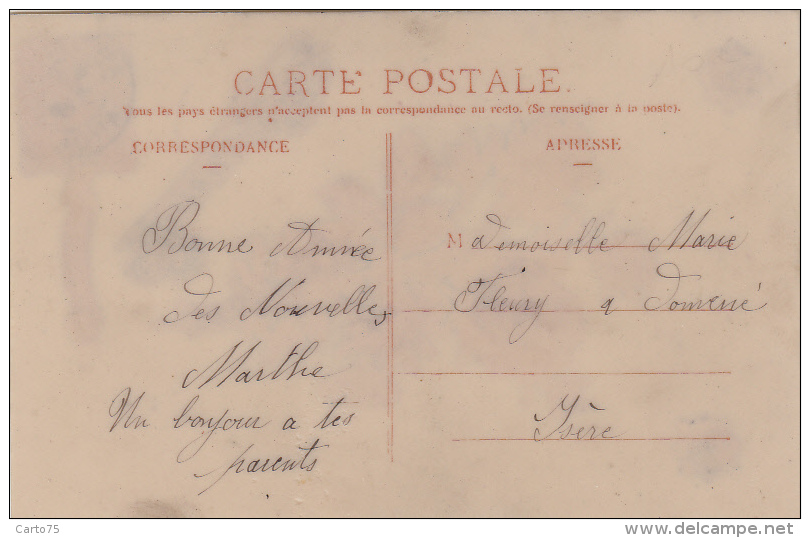 CARTE POSTALE.
Tous les pays étrangers n'acceptent pas la correspondance au recto. (Se renseigner à la poste).
CORRESPONDANCE
ADRESSE
Bonne Année
des Nouvelles
Marthe
Un bonjour a tes
parents
Mademoiselle Marie
Fleury a Domené
Isère
Carto75
www.delcampe.net